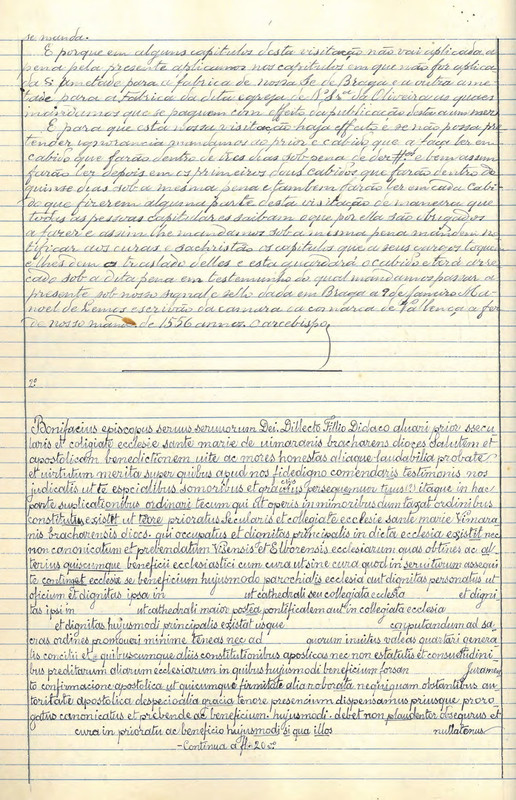 se manda.
E porque em alguns capitulos desta visitação não vai aplicada a
pena pela presente aplicamos nos capitulos em que não for aplica
da a ametade para a fabrica de nossa Sé de Braga e a outra ame
tade para a fabrica da dita egreja de Nª Srª da Oliveira as quaes
mandamos que se paguem com effeito da publicação desta a um mez
E para que esta nossa visitação haja effeito e se não possa pre
tender ignorancia mandamos ao prior e cabido que a faça ler em
cabido que farão dentro de tres dias sob pena de dez e bem assim
farão ler depois em os primeiros dous cabidos que farão dentro de
quinse dias sob a mesma pena e tambem farão ler em cada cabi-
do que fizerem alguma parte desta visitação de maneira que
todas as pessoas capitulares saibam o que por ella são obrigados
a fazer e assim lhe mandamos sob a misma pena mandem no
tificar aos curas e sachristão os capitulos que a seus cargos toquem
e lhes dem o traslado delles e esta guardará o cabido e terá arre
cado sob a dita pena em testemunho do qual mandamos passar a
presente sob nosso signal e sello dada em Braga a 9 de Janeiro Ma
noel de Lemos escrivão da camara da comarca de Valença a fez
de nosso mandado de 1556 annos. O arcebispo
2º
Bonifacius episcopus servus servorum Dei. Dillecto Fillio Didaco alvari prior ssecu
laris et coligiate ecclesie sante marie de vimaranis bracharens dioces salutem et
apostolicam benedictionem vite ac mores honestas aliaque laudabilia probate
et virtutum merita super quibus apud nos fidedigno comendaris testimonis nos
judicatis ut te espcialibus somoribus et graciis persequemur tujus (?) itaque in hac
parte suplicationibus ordinari tecum qui sit operis in minoribus dum taxat ordinibus
constitutus existit ut teore prioratus secularis et collegiate ecclesie sante marie Vimara
nis brachorensis diocs. qui occupatus et dignitas principalis in dicta ecclesia existit nec
non canonicatum et prebendatum Visensis et Elborensis ecclesiarum quas obtines ac al
terius quiscumque beneficii ecclesiastici cum cura ut sine cura quod in servuiturum assequi
te contimet ecclesie se beneficium hujusmodi parochialis ecclesia aut dignitas personatis ut
oficium et dignitas ipsa in ut cathedrali seu collegiata eclesta et digni
tas ipsi in ut cathedrali maior postea pontificalem aut in collegiata ecclesia
et dignitas hujusmodi principalis existat usque computandum ad sa
cras ordines promoveri minime teneas nec ad auiorum invitus valeas quartari genera
lis concitii et quibuscumque aliis constitutionibus apostlicas nec non estatutis et consuetudini
bus preditarum aliarum ecclesiarum in quibus hujusmodi beneficium forsan Juramen
to confirmacione apostolica ut quicumque firmitate alia roborata nequiquam obstantibus au
toritate apostolica despecioalia gracia tenore presencium dispensamus priusque proro
gatus canonicatus et prebende ac beneficium. hujusmodi. debet non plaudenter obsequrus et
cura in prioratu ac beneficio hujusmodi si qua illos nullatenus
-Continua a fl. 20 vº